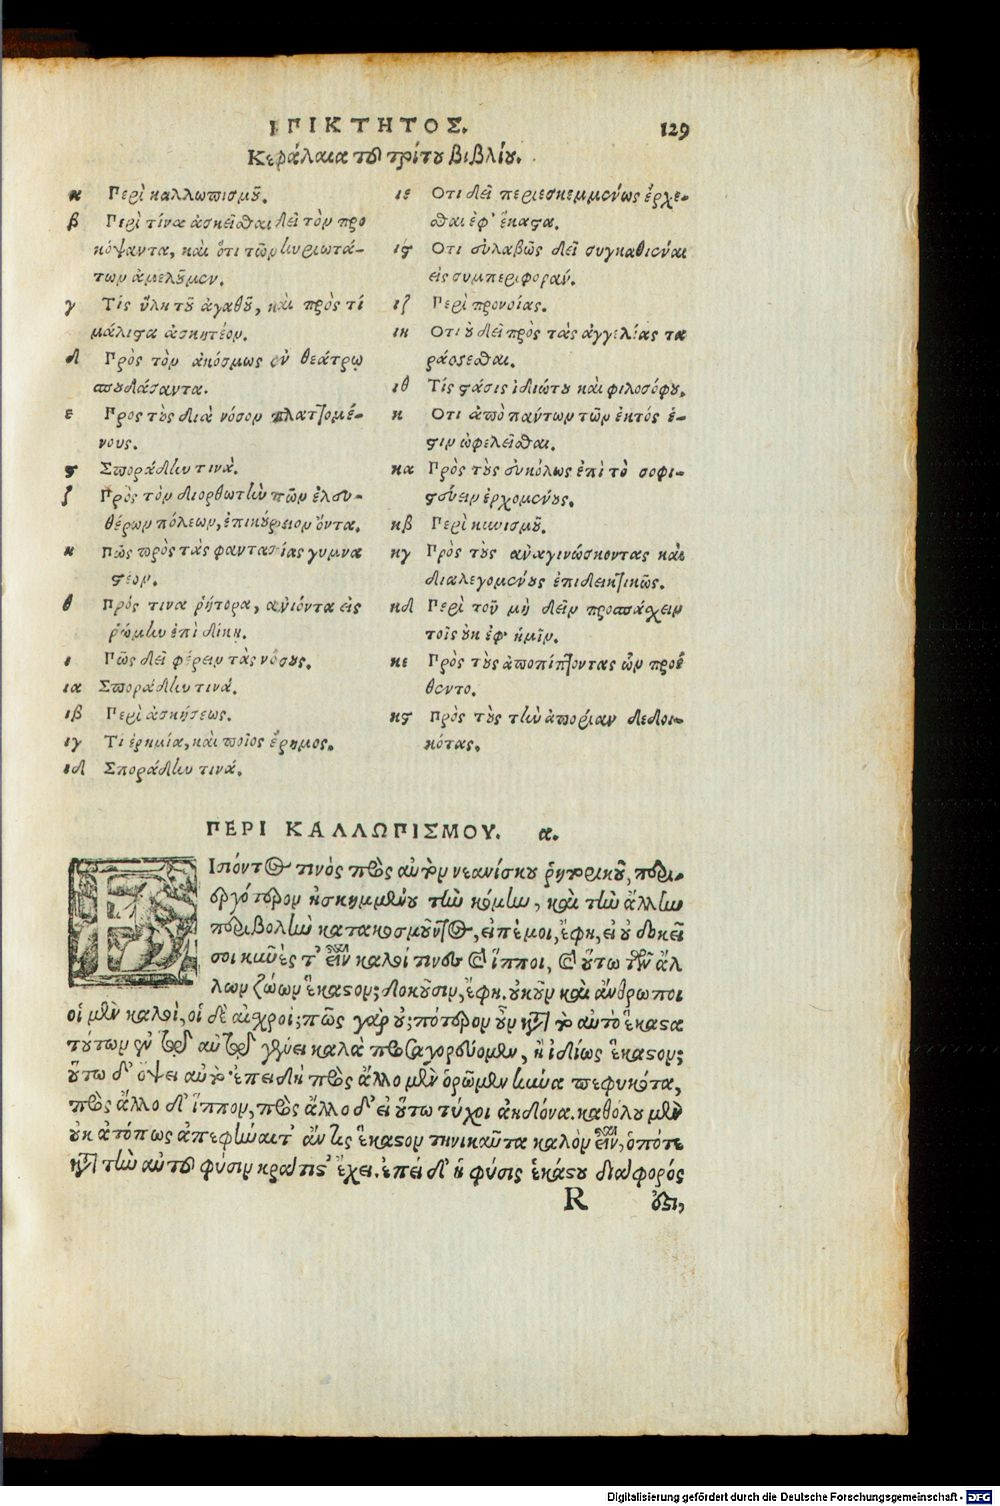 ΕΠΙΚΤΗΤΟΣ. 129
Κεφάλαια τοῦ τρίτου βιβλίου.
α Περὶ καλλωπισμοῦ.
β Περὶ τίνα ἀσκεῖσθαι δεῖ τὸν προ
κόψαντα, καὶ ὅτι τῶν κυριωτά-
των ἀμελοῦμεν.
γ Τίς ὕλη τοῦ ἀγαθοῦ, καὶ πρὸς τί
μάλιστα ἀσκητέον.
δ Πρὸς τὸν ἀκόσμως ἐν θεάτρῳ
σπουδάσαντα.
ε Προς τοὺς διὰ νόσον πλαττομέ-
νους.
ϛ Σποράδην τινὰ.
ζ Πρὸς τὸν διορθωτὴν τῶν ἐλευ-
θέρων πόλεων, ἐπικούρειον ὄντα.
η Πῶς πρὸς τὰς φαντασίας γυμνα
στέον.
θ Πρός τινα ῥήτορα, ἀνιόντα εἰς
ῥώμην ἐπὶ δίκῃ.
ι Πῶς δεῖ φέρειν τὰς νόσους.
ια Σποράδην τινά.
ιβ Περὶ ἀσκήσεως.
ιγ Τί ἐρημία, καὶ ποῖος ἔρημος.
ιδ Σποράδην τινά.
ιε Οτι δεῖ περιεσκεμμένως ἔρχε-
σθαι ἐφ' ἕκαστα.
ιϛ Οτι εὐλαβῶς δεῖ συγκαθιέναι
εἰς συμπεριφοράν.
ιζ Περὶ προνοίας.
ιη Οτι οὐ δεῖ πρὸς τὰς ἀγγελίας τα
ράσσεσθαι.
ιθ Τίς στάσις ἰδιώτου καὶ φιλοσόφου.
κ Οτι ἀπὸ πάντων τῶν ἐκτός ἐ-
στιν ὠφελεῖσθαι.
κα Πρὸς τοὺς εὐκόλως ἐπὶ τὸ σοφι-
στεύειν ἐρχομένους.
κβ Περὶ κυνισμοῦ.
κγ Πρὸς τοὺς ἀναγινώσκοντας καὶ
διαλεγομένους ἐπιδεικτικῶς.
κδ Περὶ τοῦ μὴ δεῖν προσπάσχειν
τοῖς οὐκ ἐφ' ἡμῖν.
κε Πρὸς τοὺς ἀποπίπτοντας ὧν προέ
θεντο.
κϛ Πρὸς τοὺς τὴν ἀπορίαν δεδοι-
κότας.
ΠΕΡΙ ΚΑΛΛΩΠΙΣΜΟΥ. α.
ΕΙσιόντος τινὸς πρὸς αὐτὸν νεανίσκου ῥητορικοῦ, περι-
εργότερον ἡσκημμένου τὴν κόμην, καὶ τὴν ἄλλην
περιβολὴν κατακοσμοῦντος, εἰπέ μοι, ἔφη, εἰ οὐ δοκεῖ
σοι κύνες τ' εἶναι καλοί τινες καὶ ἵπποι, καὶ οὕτω τῶν ἄλ
λων ζώων ἕκαστον; δοκοῦσιν, ἔφη. οὐκοῦν καὶ ἄνθρωποι
οἱ μὲν καλοί, οἱ δὲ αἰσχροί; πῶς γὰρ οὔ; πότερον οὖν κατὰ τὸ αὐτὸ ἕκαστα
τούτων ἐν τῷ αὐτῷ γένει καλὰ προσαγορεύομεν, ἢ ἰδίως ἕκαστον;
οὕτω δ' ὄψει αὐτό· ἐπειδὴ πρὸς ἄλλο μὲν ὁρῶμεν κύνα πεφυκότα,
πρὸς ἄλλο δ' ἵππον, πρὸς ἄλλο δ' εἰ οὕτω τύχοι ἀηδόνα. καθόλου μὲν
οὐκ ἀτόπως ἀπεφήναιτ' ἄν τις ἕκαστον τηνικαῦτα καλὸν εἶναι, ὁπότε
κατὰ τὴν αὐτοῦ φύσιν κράτιστ' ἔχει. ἐπεὶ δ' ἡ φύσις ἑκάστου διάφορός
R ἐστι,
Digitalisierung gefördert durch die Deutsche Forschungsgemeinschaft - DFG